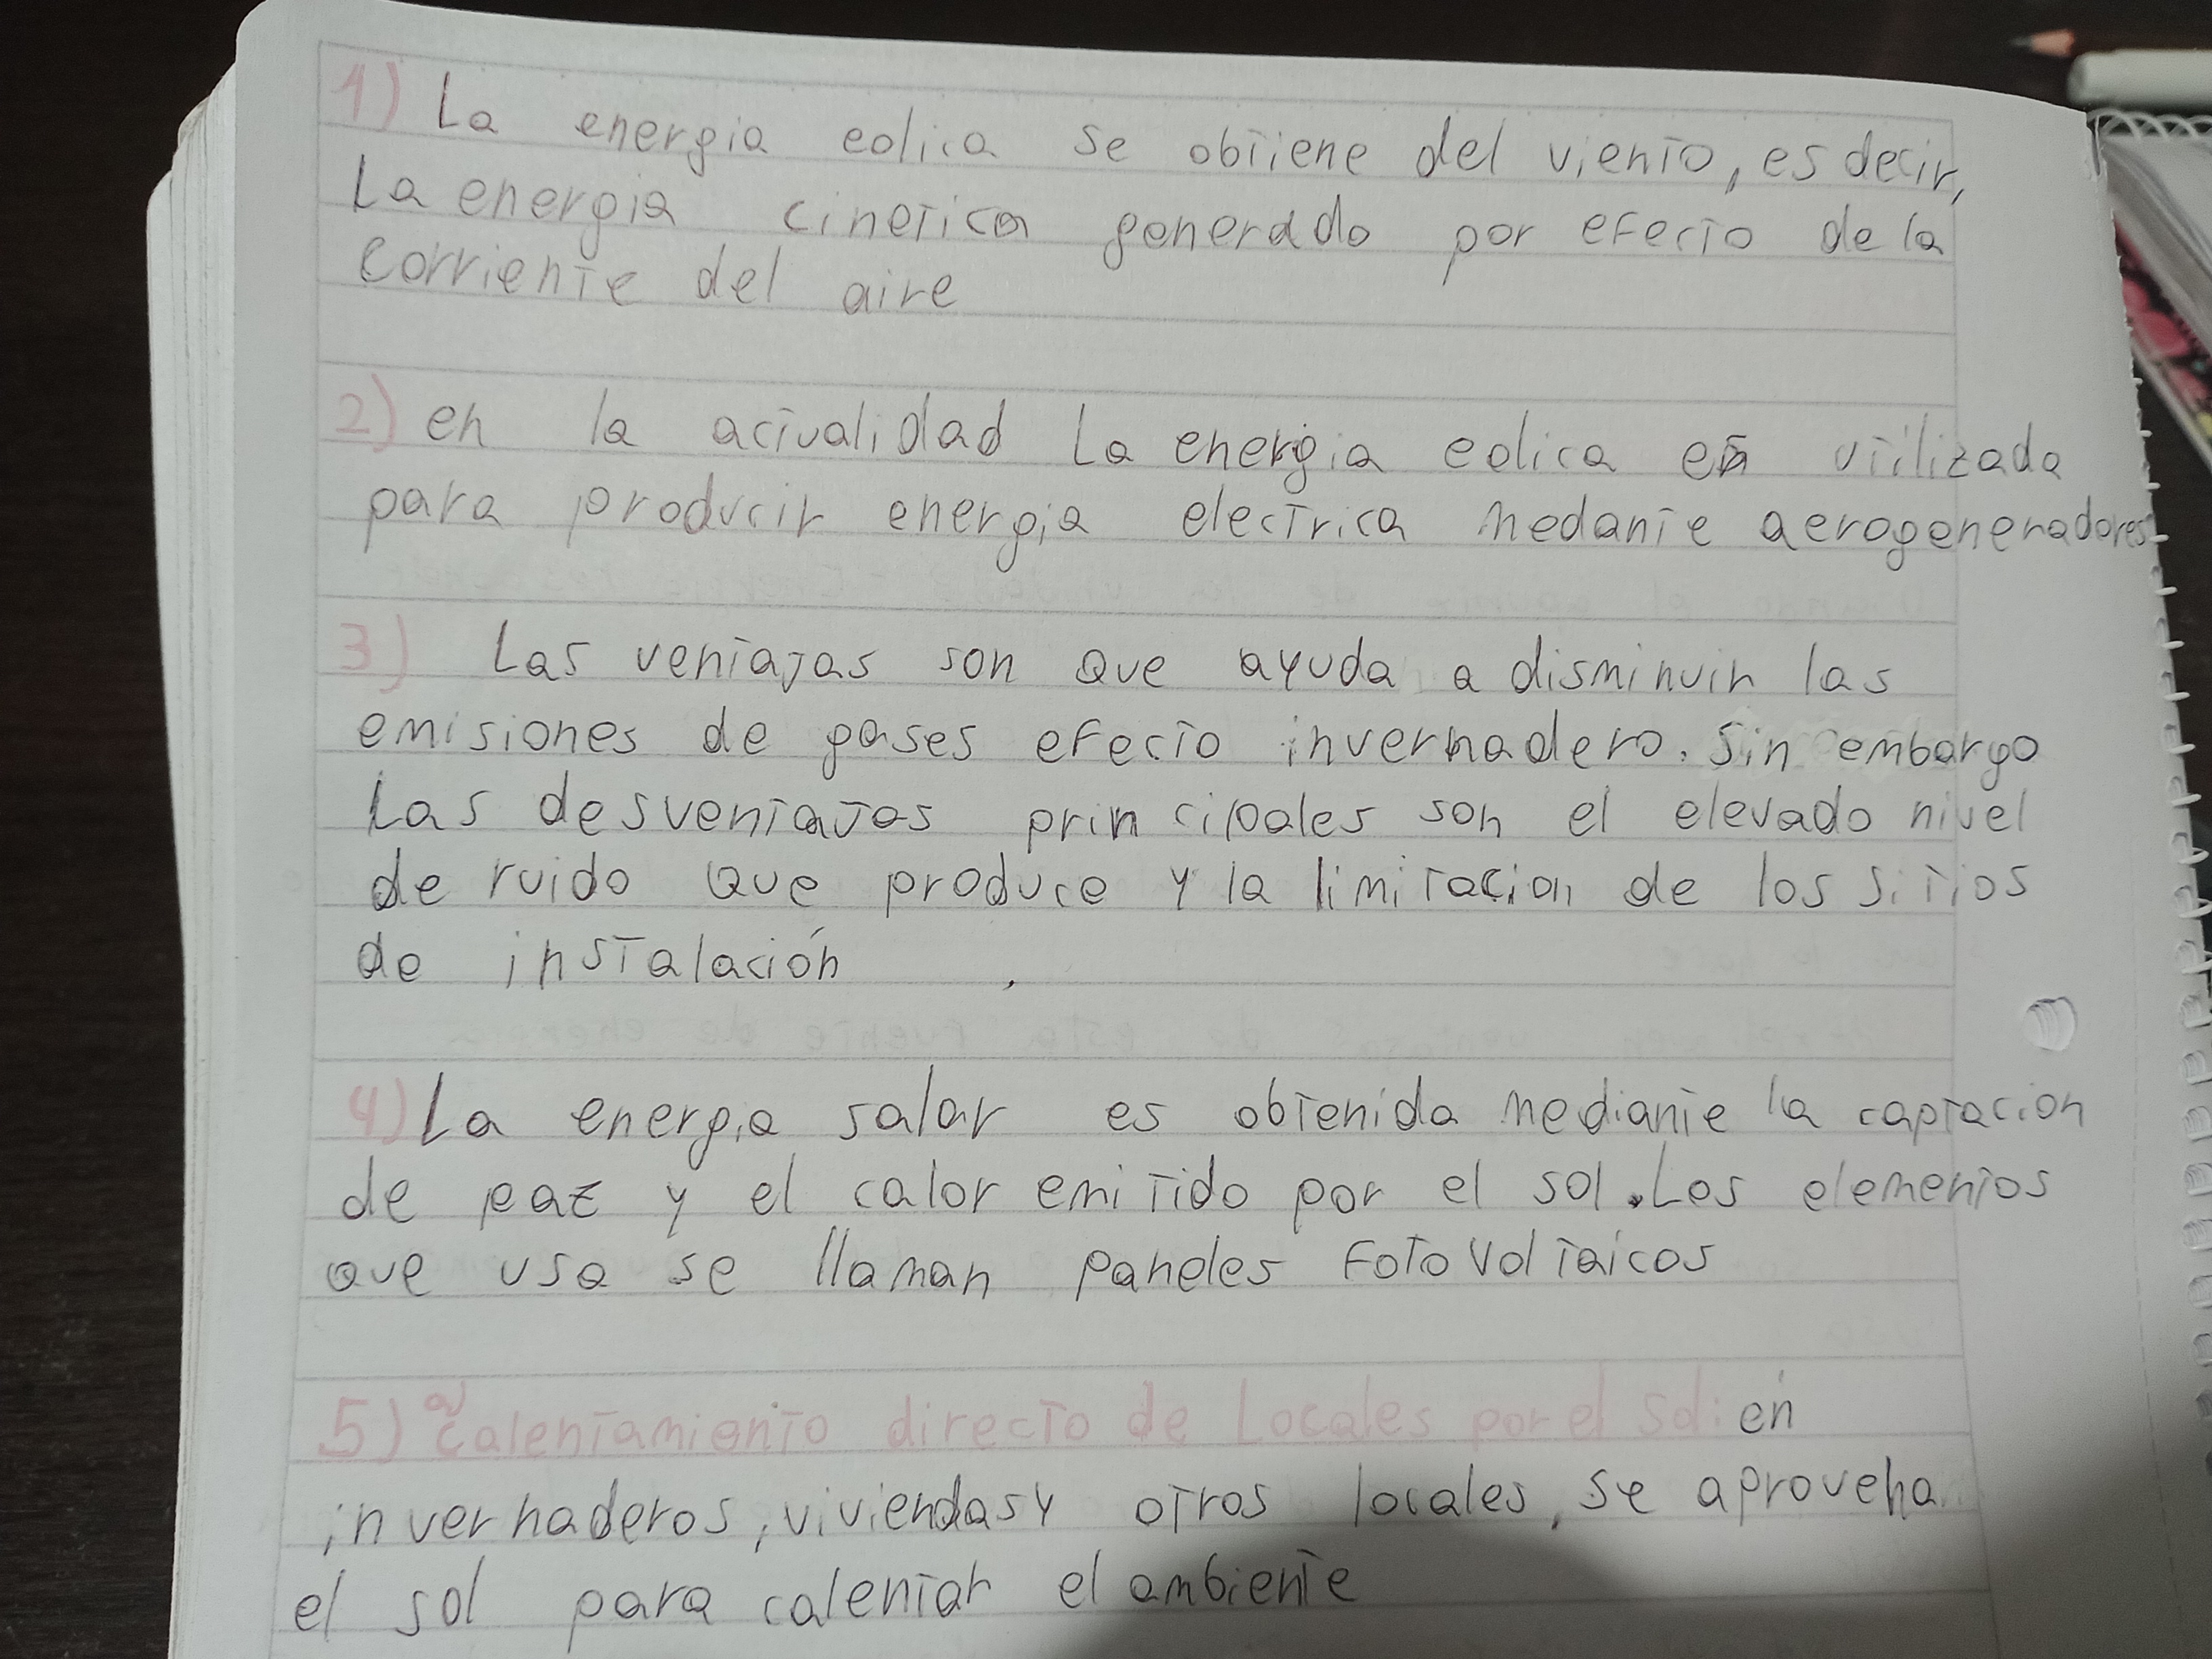 1) La energia eolica se obtiene del viento, es decir,
La energia cinetica generado por efecto de la
corriente del aire
2) en la actualidad La energia eolica es utilizada
para producir energia electrica medante aerogeneradores
3) Las ventajas son que ayuda a disminuir las
emisiones de gases efecto invernadero. Sin embargo
Las desventajas principales son el elevado nivel
de ruido que produce y la limitacion de los sitios
de instalación
4) La energia salar es obtenida mediante la captacion
de paz y el calor emitido por el sol. Los elementos
que usa se llaman paneles fotovoltaicos
5) a) Calentamiento directo de Locales por el sol: en
invernaderos, viviendas y otros locales, se aproveha
el sol para calentar el ambiente